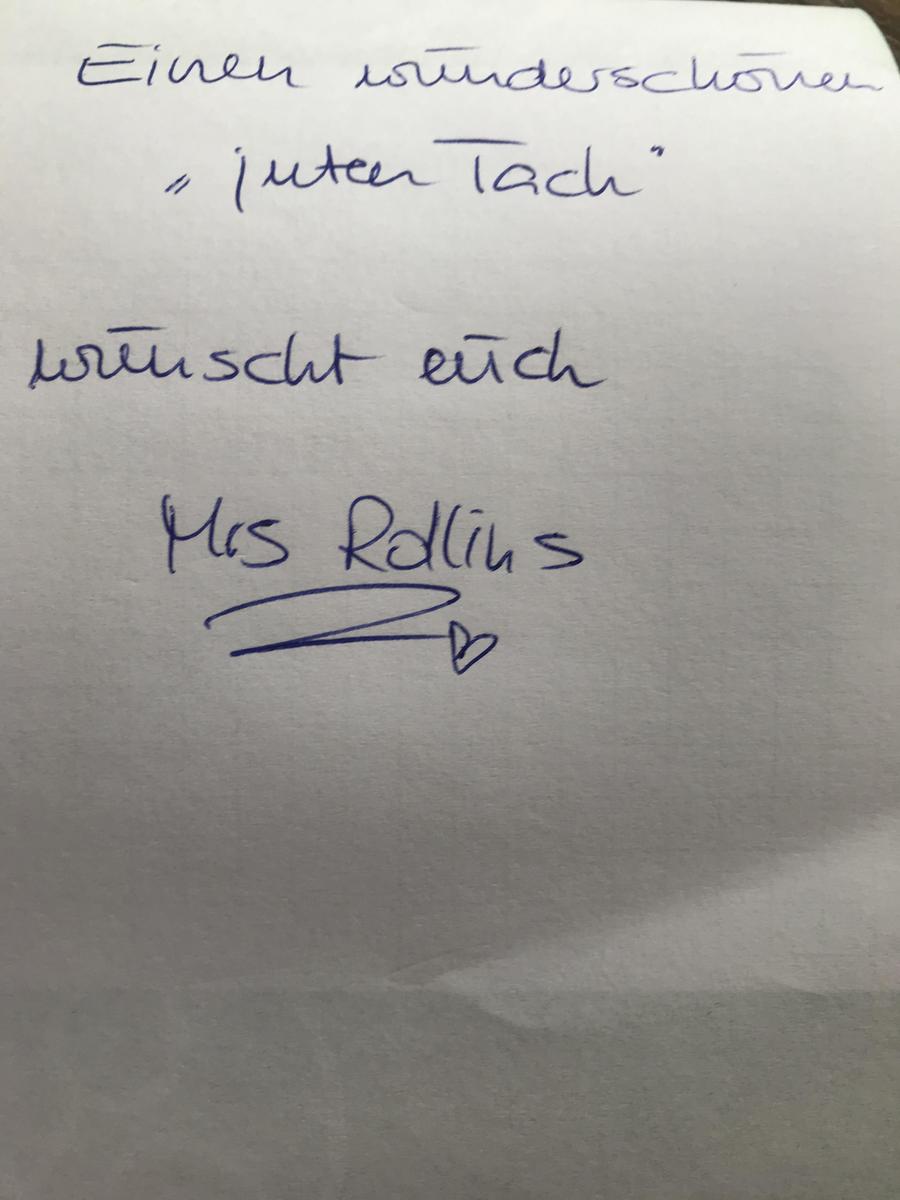 Einen wunderschönen
„juten Tach"
wünscht euch
Mrs Rollins